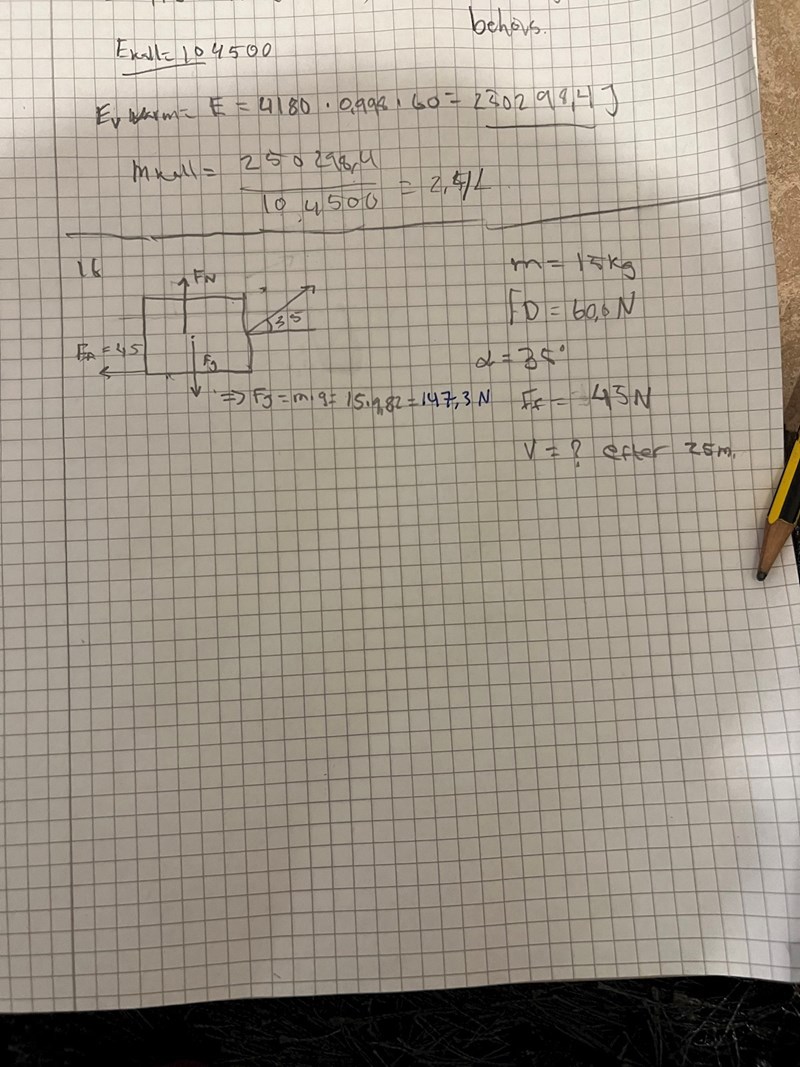 behövs.
Ekall = 104500
Ev varm = E = 4180 · 0,998 · 60 = 230298,4 J
mkall = 250298,4 / 104500 = 2,4/L
16
FN
35
= 45
Fg
=> Fg = m·g = 15·9,82 = 147,3 N
m = 15kg
FD = 60,0 N
α = 35°
= 45N
V = ? efter 25m.